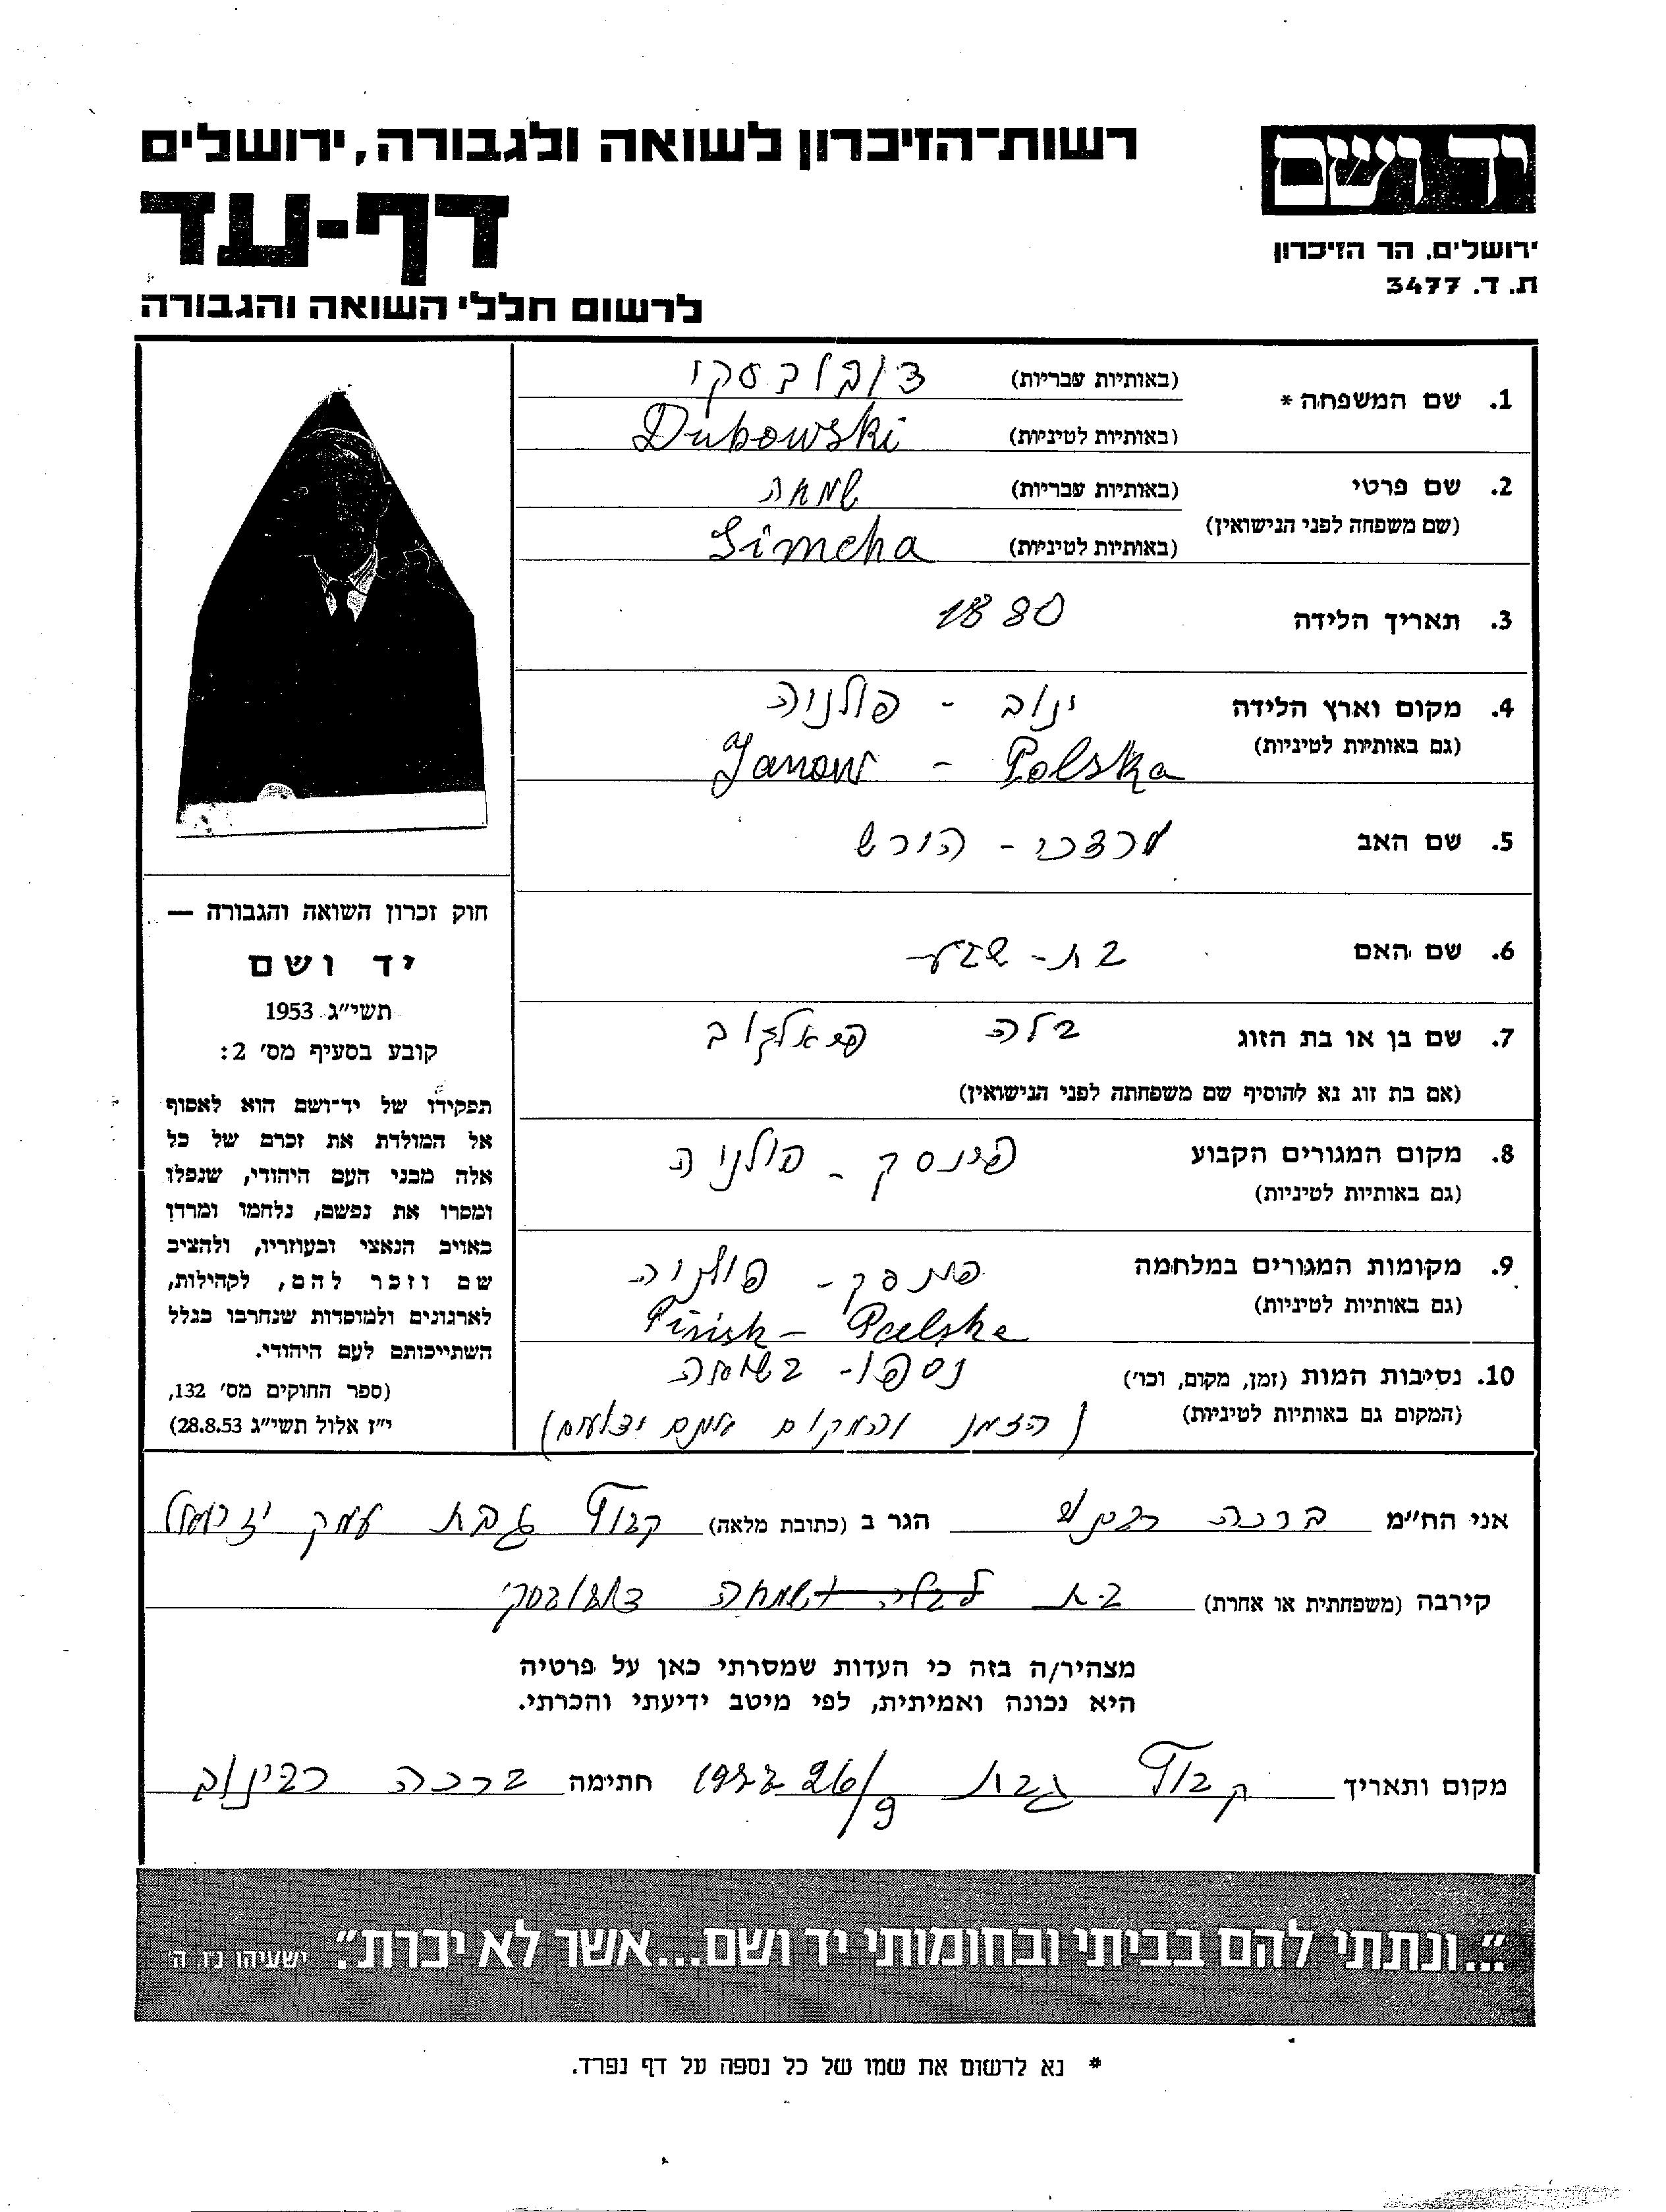 רשות־הזיכרון לשואה ולגבורה, ירושלים
דף-עד
לרשום חללי השואה והגבורה
יד ושם
ירושלים, הר הזיכרון
ת. ד. 3477
1. שם המשפחה * (באותיות עבריות) דובובסקי
(באותיות לטיניות) Dubowski
2. שם פרטי (באותיות עבריות) שמחה
(שם משפחה לפני הנישואין) (באותיות לטיניות) Simcha
3. תאריך הלידה 1880
4. מקום וארץ הלידה ינוב - פולניה
(גם באותיות לטיניות) Janow - Polska
5. שם האב מרדכי - הירש
6. שם האם בת - שבע
7. שם בן או בת הזוג בלה
(אם בת זוג נא להוסיף שם משפחתה לפני הנישואין)
8. מקום המגורים הקבוע פינסק - פולניה
(גם באותיות לטיניות)
9. מקומות המגורים במלחמה פינסק - פולניה
(גם באותיות לטיניות) Pinsk - Polska
10. נסיבות המות (זמן, מקום, וכו') נספו - בשואה
(המקום גם באותיות לטיניות) (הזמן והמקום אינם ידועים)
חוק זכרון השואה והגבורה —
יד ושם
תשי״ג 1953
קובע בסעיף מס' 2:
תפקידו של יד־ושם הוא לאסוף
אל המולדת את זכרם של כל
אלה מבני העם היהודי, שנפלו
ומסרו את נפשם, נלחמו ומרדו
באויב הנאצי ובעוזריו, ולהציב
שם וזכר להם, לקהילות,
לארגונים ולמוסדות שנחרבו בגלל
השתייכותם לעם היהודי.
(ספר החוקים מס' 132,
י״ז אלול תשי״ג 28.8.53)
אני הח״מ ברכה רבינוב הגר ב (כתובת מלאה) קבוץ גבת עמק יזרעאל
קירבה (משפחתית או אחרת) בת שמחה דובובסקי
מצהיר/ה בזה כי העדות שמסרתי כאן על פרטיה
היא נכונה ואמיתית, לפי מיטב ידיעתי והכרתי.
מקום ותאריך קבוץ גבת 26/9 חתימה ברכה רבינוב
״...ונתתי להם בביתי ובחומותי יד ושם...אשר לא יכרת״. ישעיהו נ״ו, ה'
* נא לרשום את שמו של כל נספה על דף נפרד.